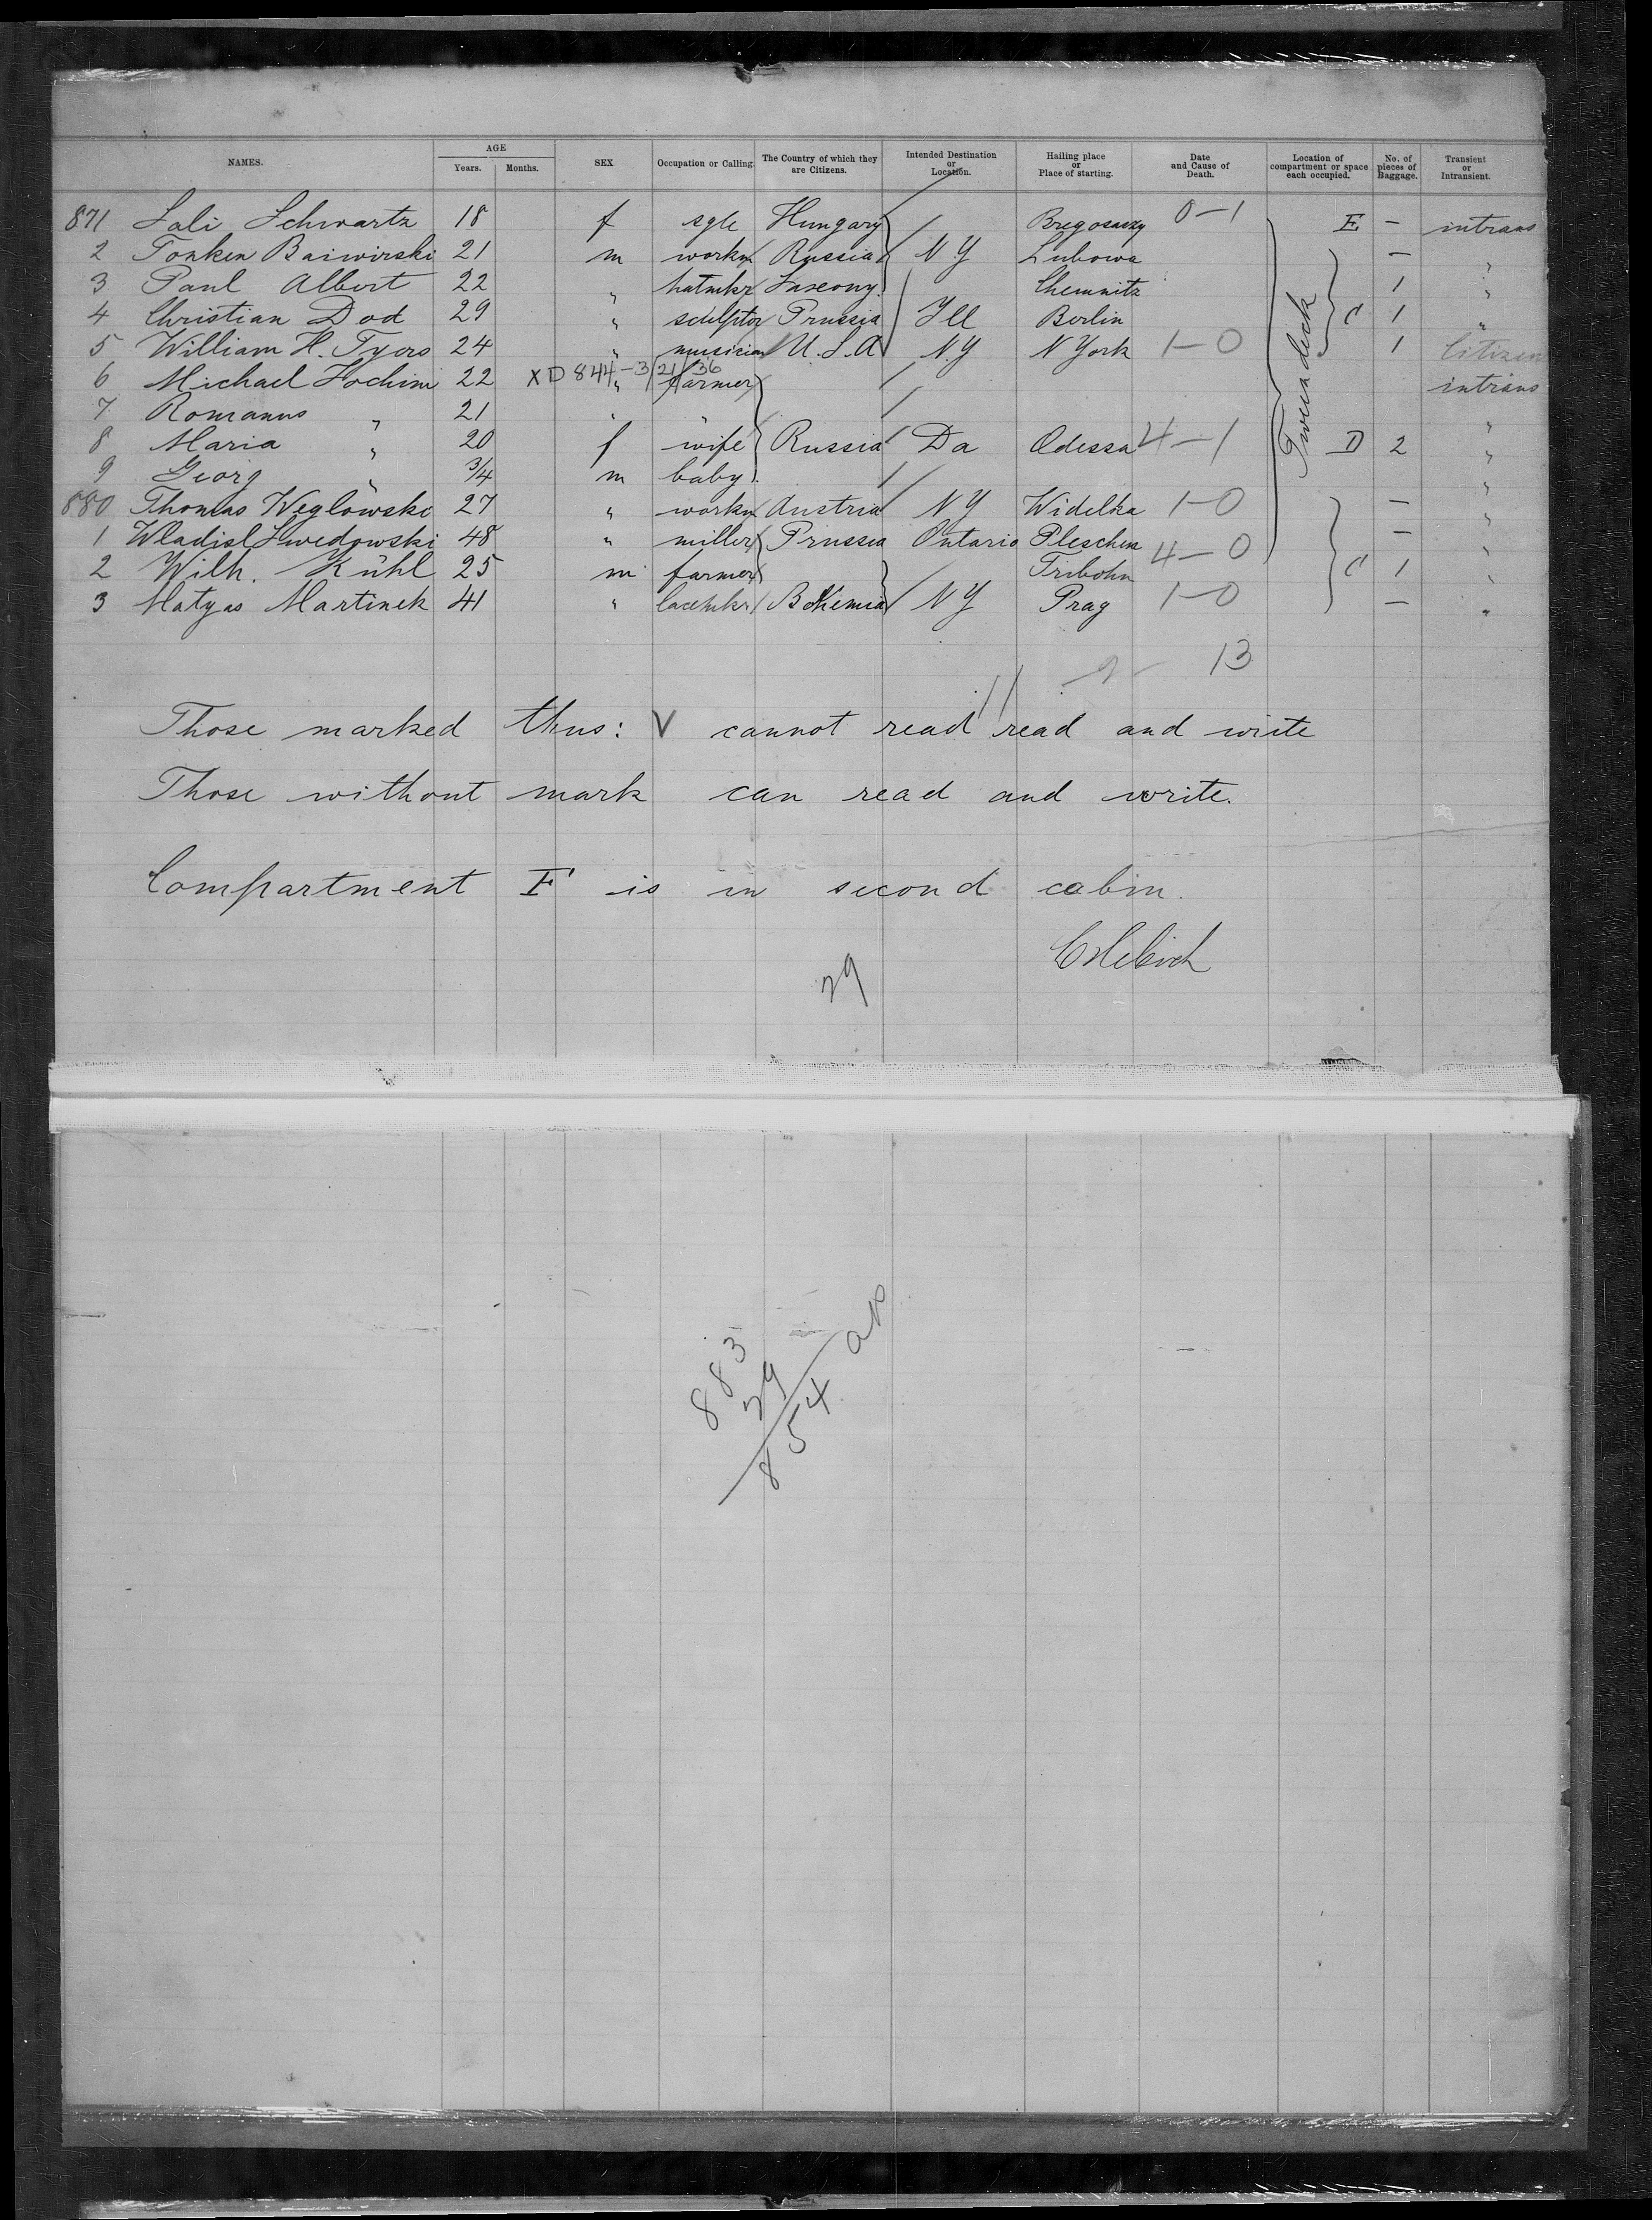 NAMES. AGE Years. Months. SEX Occupation or Calling. The Country of which they are Citizens. Intended Destination or Location. Hailing place or Place of starting. Date and Cause of Death. Location of compartment or space each occupied. No. of pieces of Baggage. Transient or Intransient.
871 Sali Schwartz 18 f sgle Hungary 0-1 E - intrans
2 Tonken Baiwirski 21 m workm Russia N Y Lubowa - "
3 Paul Albert 22 " hatmkr Saxony Chemnitz 1 "
4 Christian Dod 29 " sculptor Prussia Ill Berlin C 1 "
5 William H. Tyers 24 " musician U.S.A N.Y N York 1-0 1 Citizen
6 Michael Jochim 22 XD 844-3/21/36 " farmer intrans
7 Romanus " 21 " "
8 Maria " 20 f wife Russia Da Odessa 4-1 D 2 "
9 Georg " 3/4 m baby "
880 Thomas Weglowski 27 " workm Austria N Y Widelka 1-0 - "
1 Wladisl Swedowski 48 " miller Prussia Ontario Pleschen 4-0 - "
2 Wilh. Kühl 25 m farmer Tribohm C 1 "
3 Matyas Martinek 41 " lacemkr Bohemia N Y Prag 1-0 - "
Tweendeck
2 13
Those marked thus: V cannot read read and write
Those without mark can read and write.
Compartment F is in second cabin.
29
883
29
854